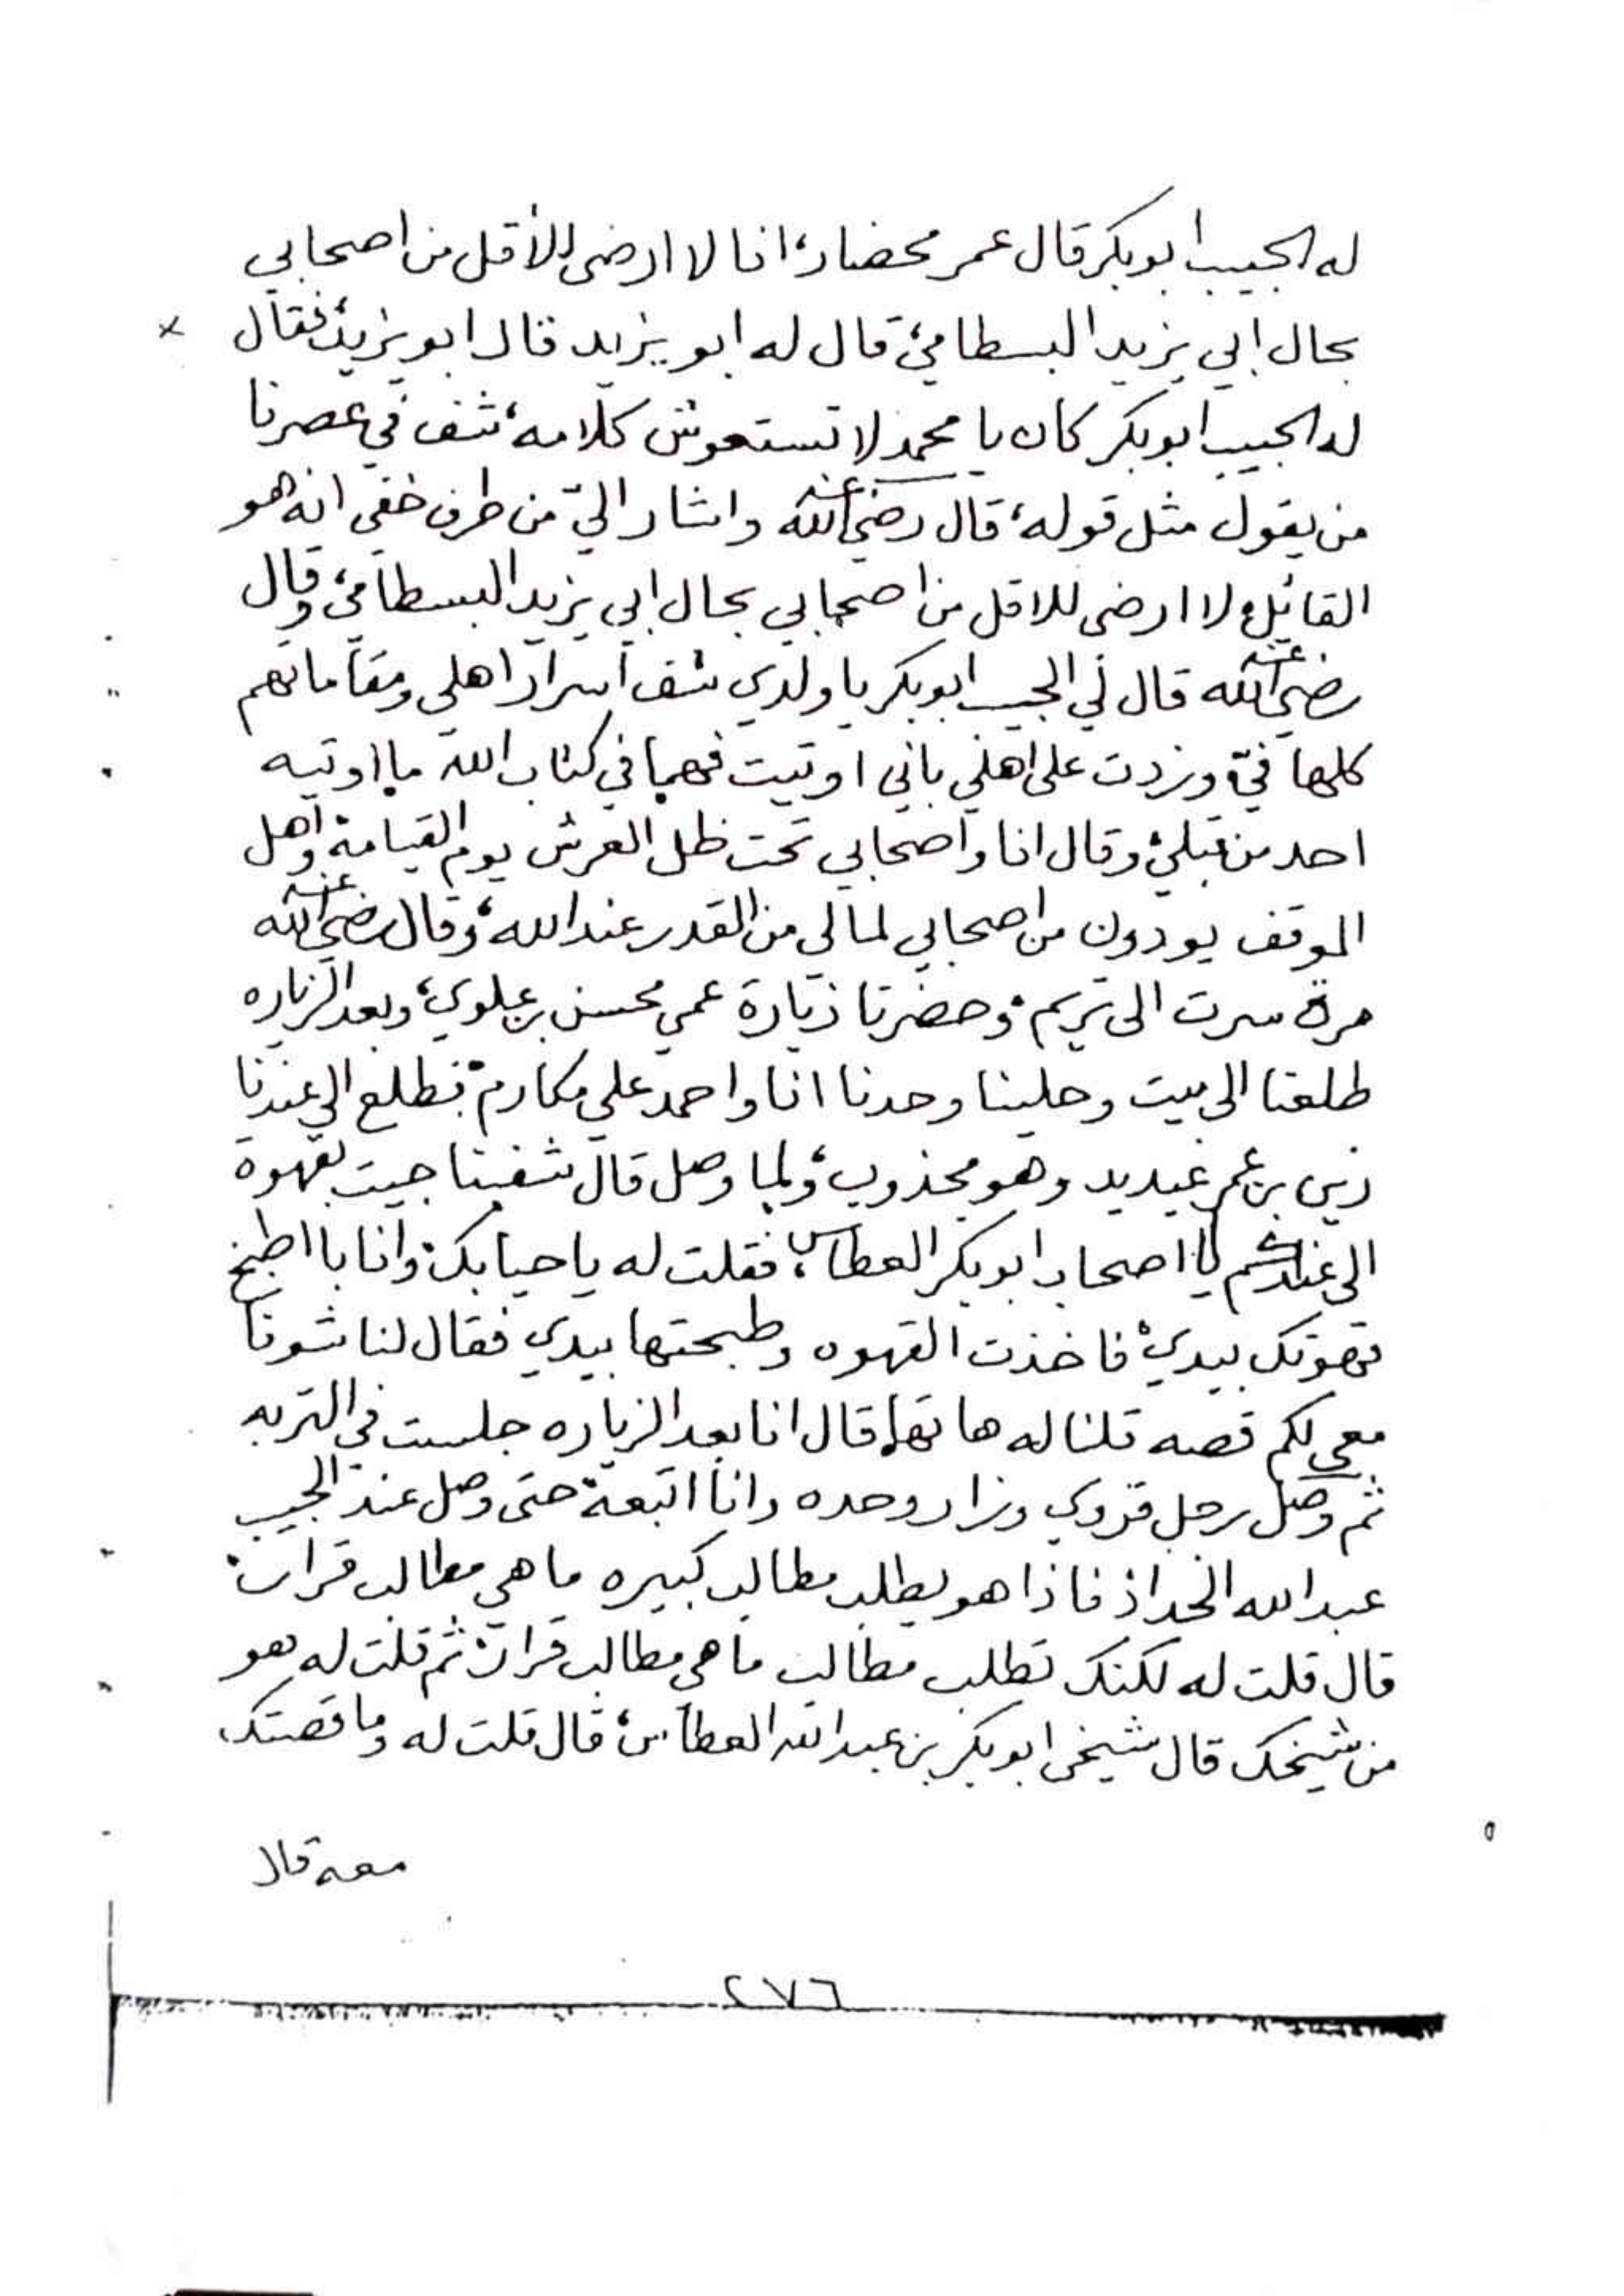 له الحبيب ابوبكر قال عمر محضار، انا لا ارضى للأقل من اصحابي
بحال ابي يزيد البسطامي، قال له ابو يزيد قال ابو يزيد، فقال ×
له الحبيب ابوبكر كان يا محمد لا تستعوش كلامه، شف في عصرنا
من يقول مثل قوله، قال رضي الله عنه واشار اليّ من طرف خفي انه هو
القائل، لا ارضى للاقل من اصحابي بحال ابي يزيد البسطامي، وقال
رضي الله عنه قال لي الحبيب ابوبكر يا ولدي شف اسرار اهلي ومقاماتهم
كلها فيّ، وزدت على اهلي باني اوتيت فهما في كتاب الله ما اوتيه
احد من قبلي، وقال انا واصحابي تحت ظل العرش يوم القيامة، واهل
الموقف يودون من اصحابي لما لي من القدر عند الله، وقال رضي الله عنه
مرة سرت الى تريم، وحضرنا زيارة عمي محسن بن علوي، وبعد الزياره
طلعنا الى بيت وحلينا وحدنا انا واحمد علي مكارم، فطلع الى عندنا
زين بن عمر عيديد وهو مجذوب، ولما وصل قال شفنا جيت بقهوة
الى عندكم يا اصحاب ابوبكر العطاس، فقلت له يا حيا بك، وانا با اطبخ
قهوتك بيدي، فاخذت القهوه وطبختها بيدي فقال لنا شونا
معي لكم قصه قلنا له هاتها، قال انا بعد الزياره جلست في التربه
ثم وصل رجل قروي وزار وحده وانا اتبعه، حتى وصل عند الحبيب
عبدالله الحداد فاذا هو يطلب مطالب كبيره ما هي مطالب قران،
قال قلت له لكنك تطلب مطالب ما هي مطالب قران، ثم قلت له هو
من شيخك قال شيخي ابوبكر بن عبدالله العطاس، قال قلت له وما قصتك
معه قال
٢٧٦